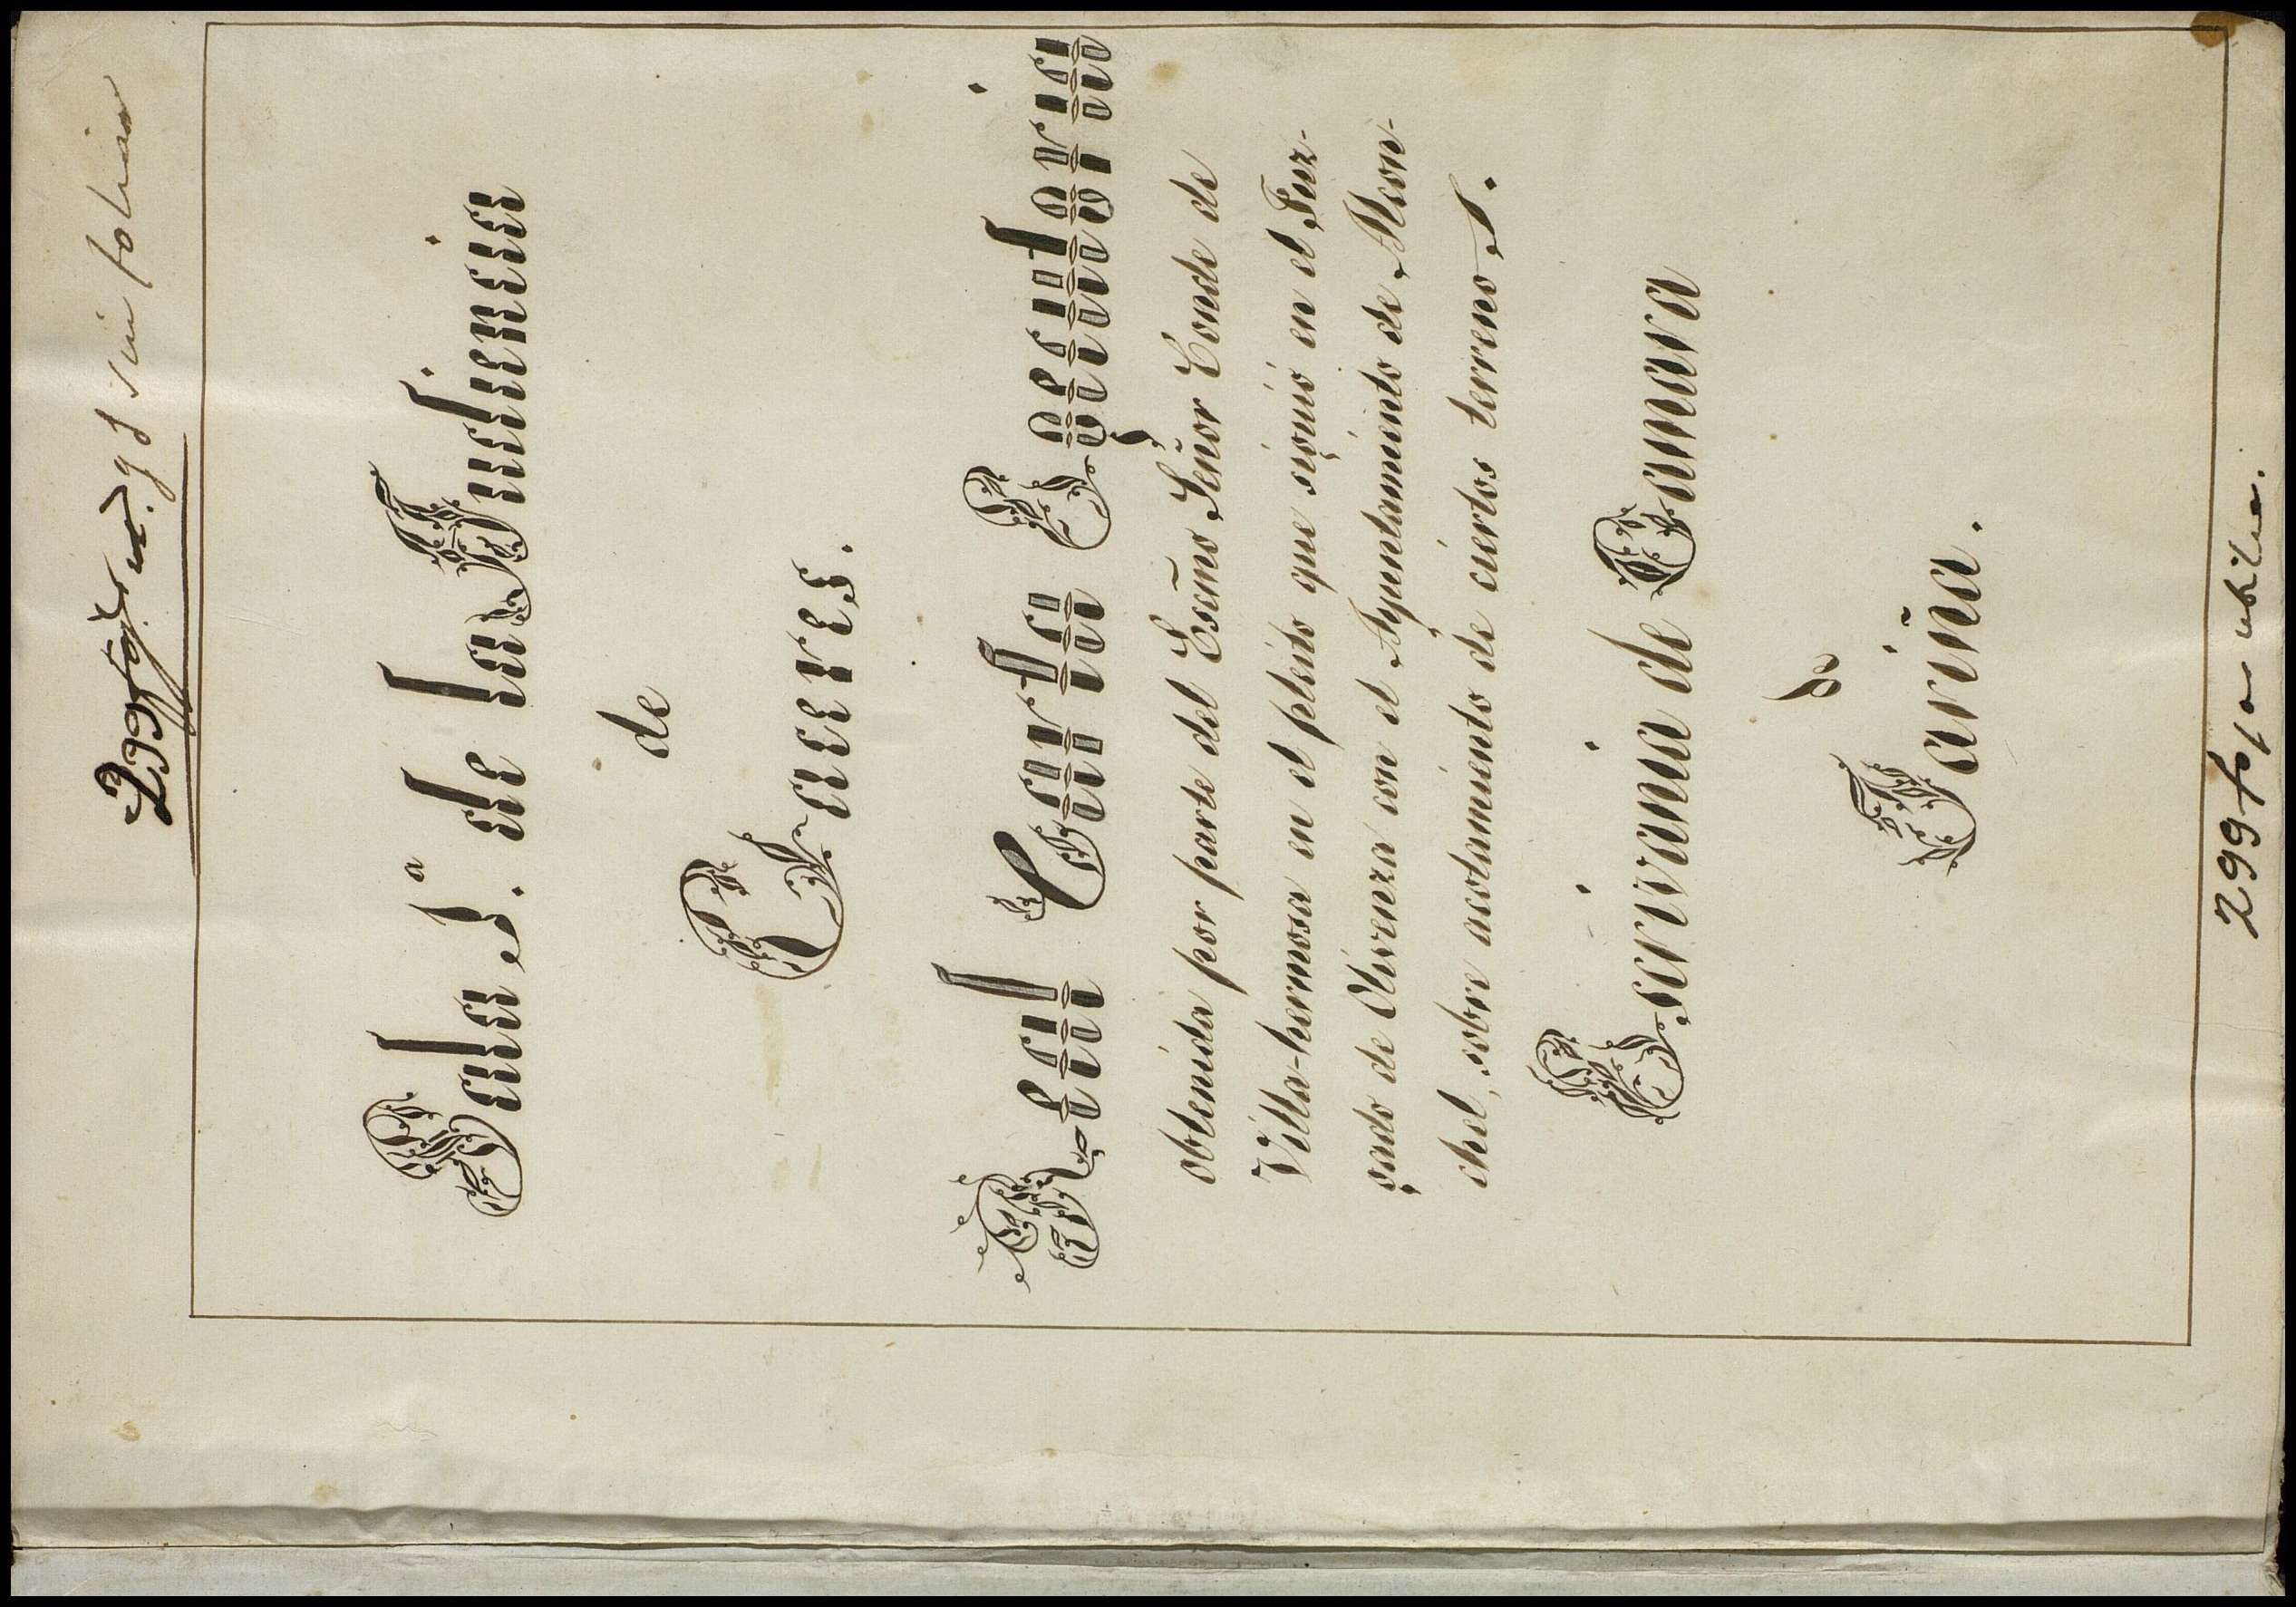 299 fojas sin foliar
Sala 1.ª de la Audiencia
de
Cáceres.
Real Carta Egecutoria
obtenida por parte del Escmõ Señor Conde de
Villa-hermosa en el pleito que siguió en el Juz-
gado de Olivenza con el Ayuntamiento de Alcon-
chel, sobre acotamiento de ciertos terrenos.
Escrivania de Camara
de
Fariña.
299 fojas utiles.